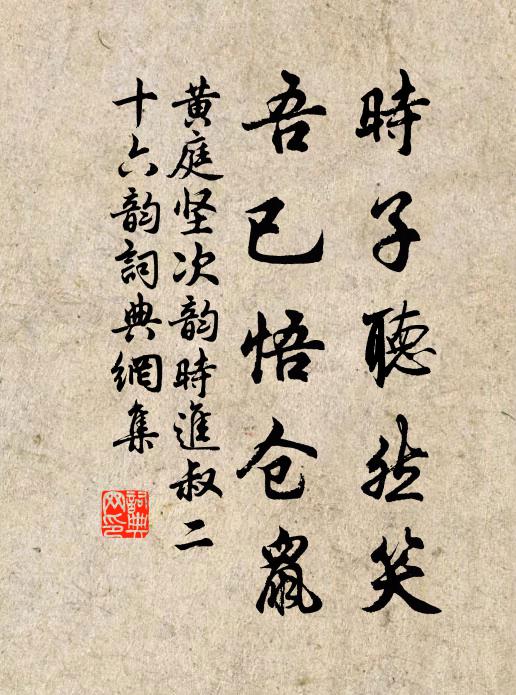 時子聴然笑
吾已悟仓鼠
黄庭坚次韵時進叔二
十六韵詞典網集
詞典
网印